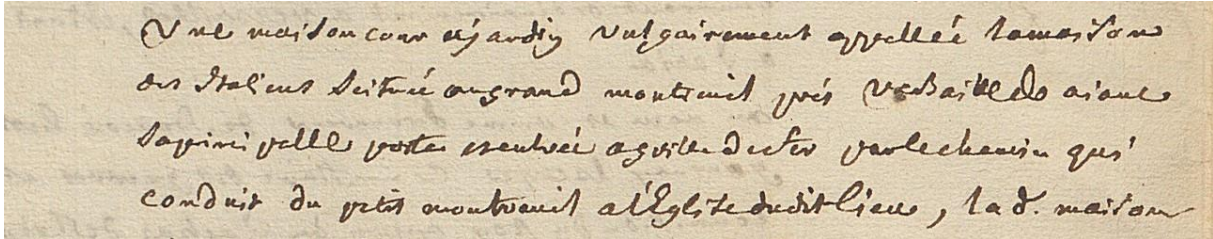 Une maison cour et jardin vulgairement appellée la maison
des Italiens scituée au grand montreuil prés Versailles aiant
sa principalle porte et entrée a grille de fer par le chemin qui
conduit du petit montreuil a l'Eglise dudit lieu, lad. maison